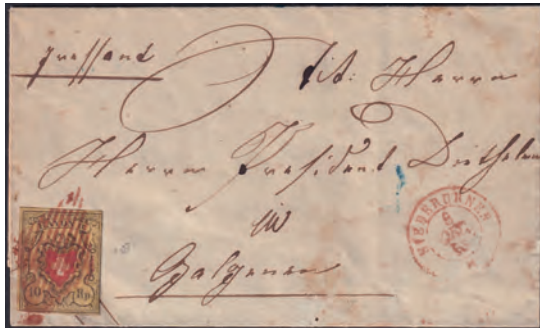 pressant
Tit: Herrn
Herrn President Diethelm
in
Galgenen
10 Rp.
NIEDERURNEN